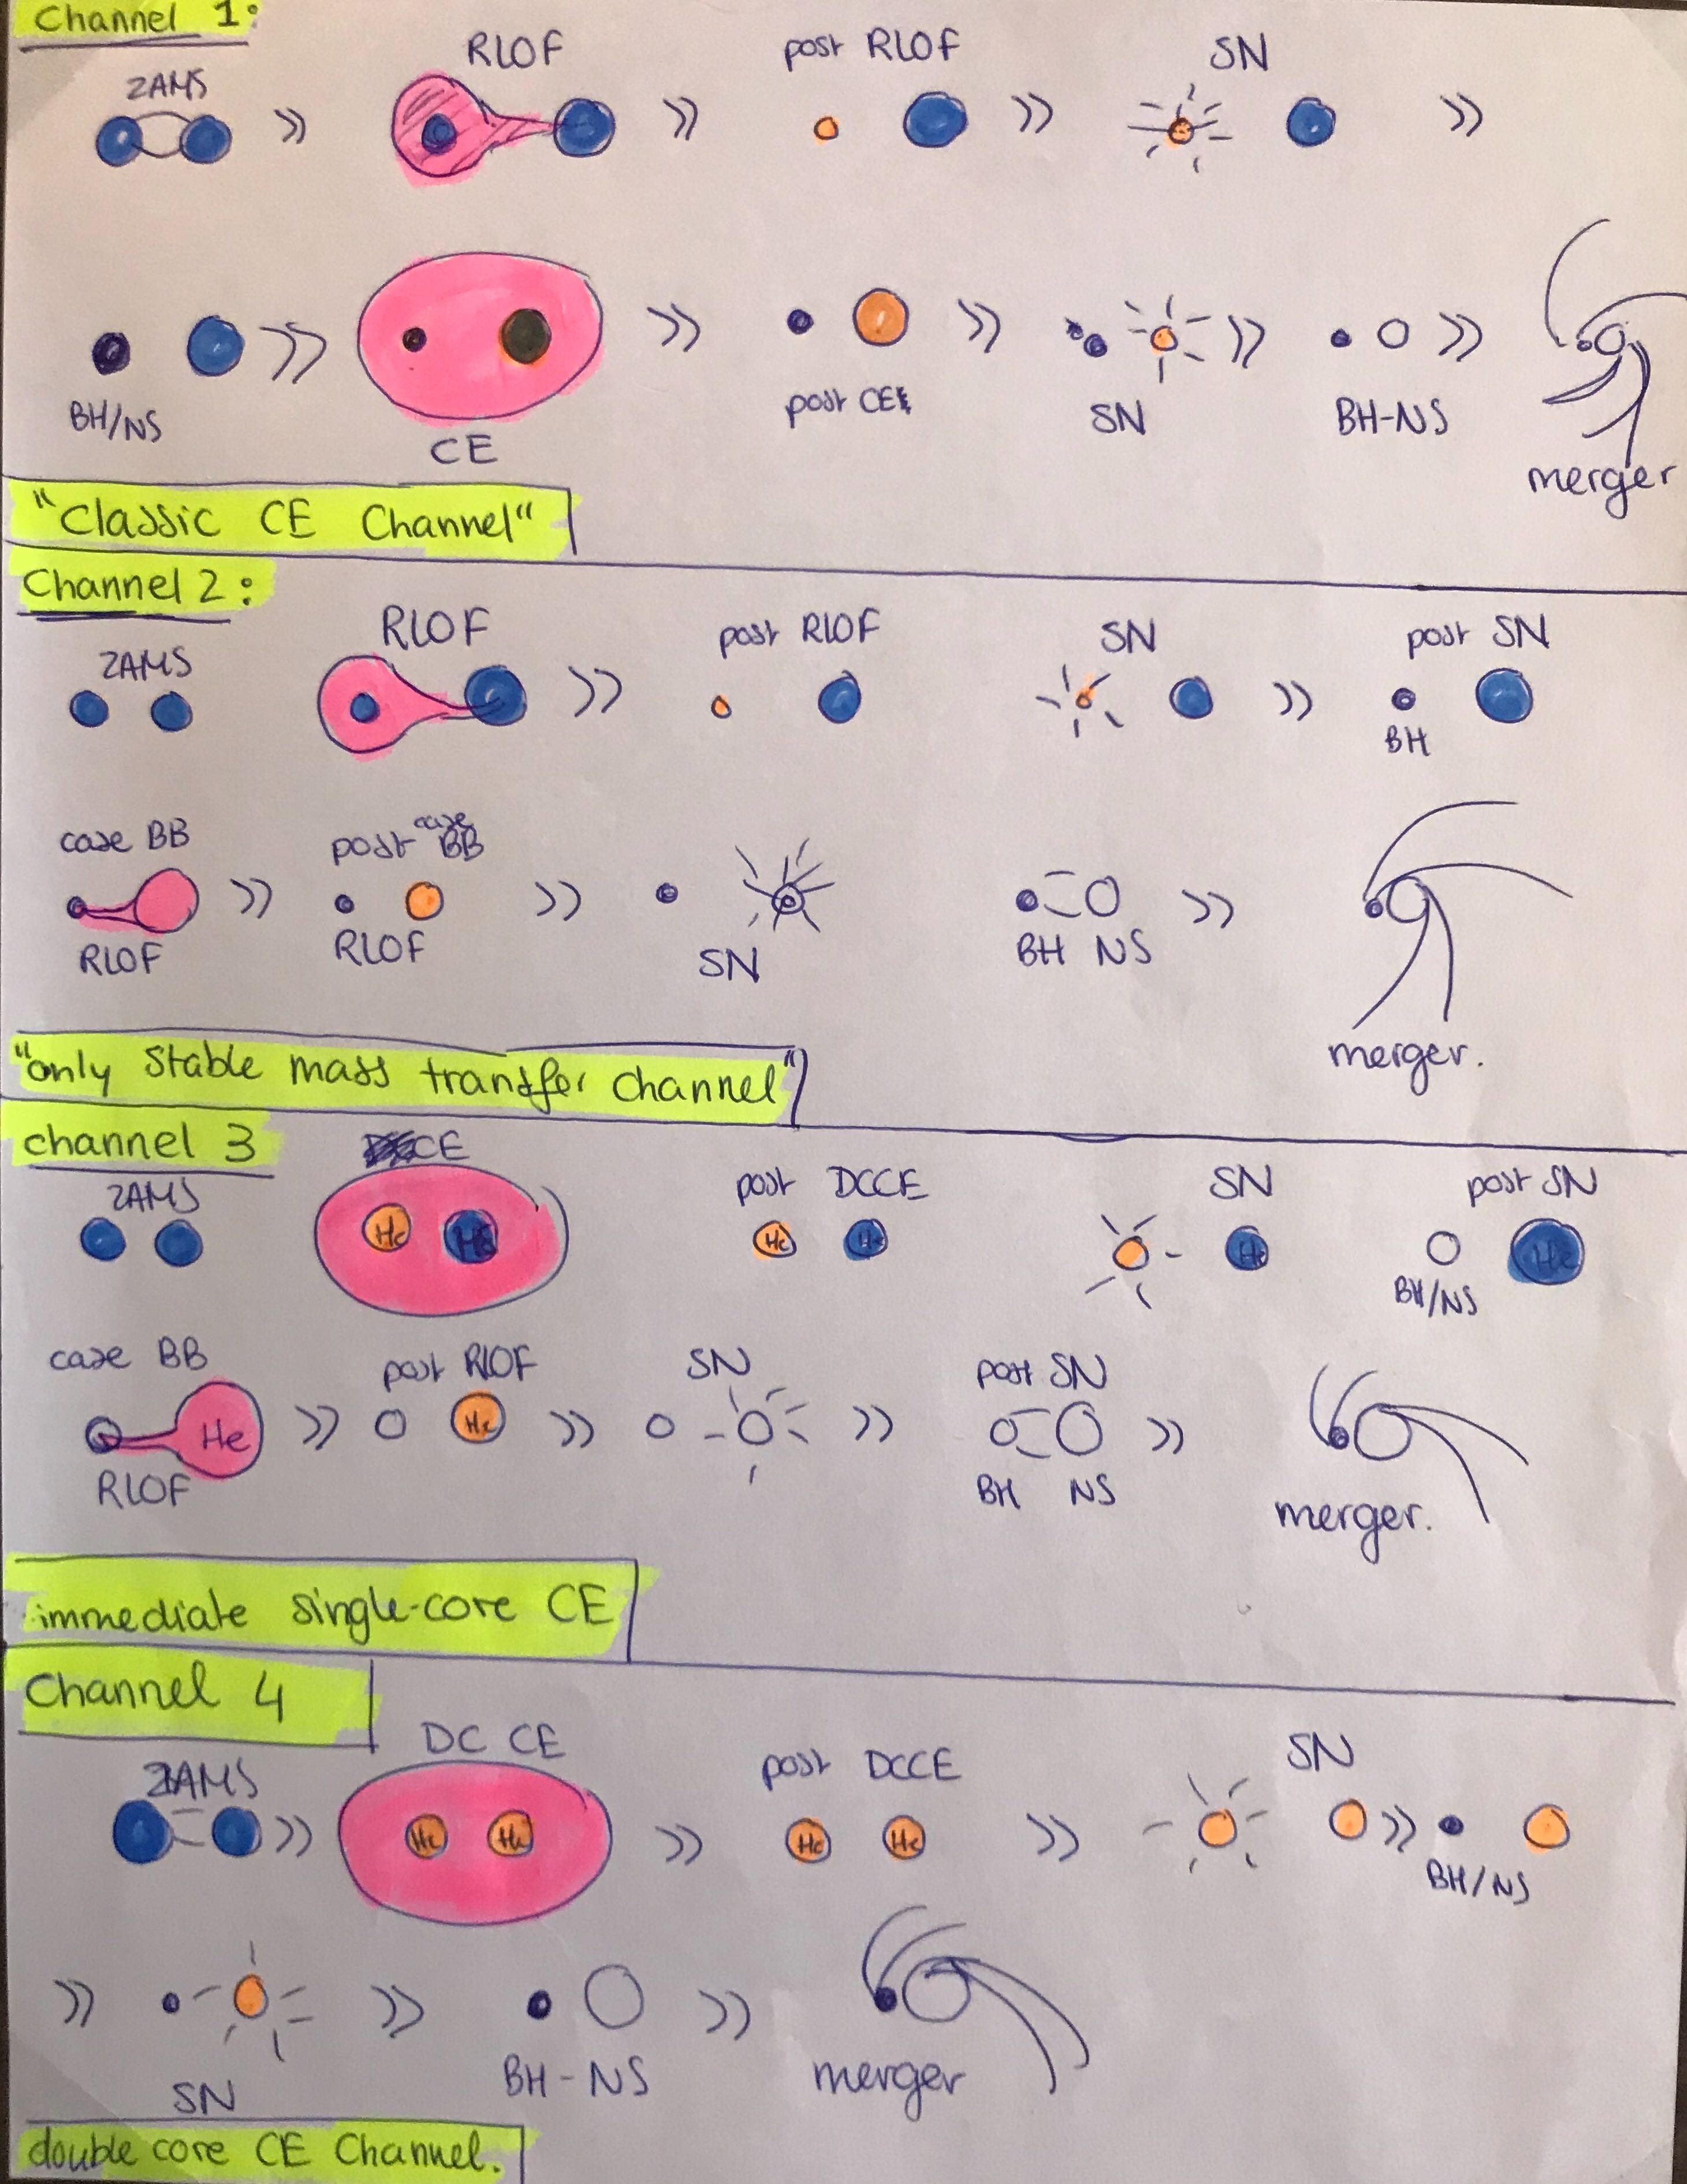 Channel 1:
ZAMS RLOF post RLOF SN
» » » »
» » » » »
BH/NS CE post CE SN BH-NS merger
"Classic CE Channel"
Channel 2:
ZAMS RLOF post RLOF SN post SN
» »
BH
case BB post case BB
» » »
RLOF RLOF SN BH NS
merger.
"only stable mass transfer channel"
channel 3
CE
ZAMS post DCCE SN post SN
He He He He He He
BH/NS
case BB post RLOF SN post SN
He » He » » »
RLOF BH NS merger.
immediate single-core CE
Channel 4
DC CE
ZAMS post DCCE SN
» He He » He He » »
BH/NS
» » »
SN BH-NS merger
double core CE Channel.